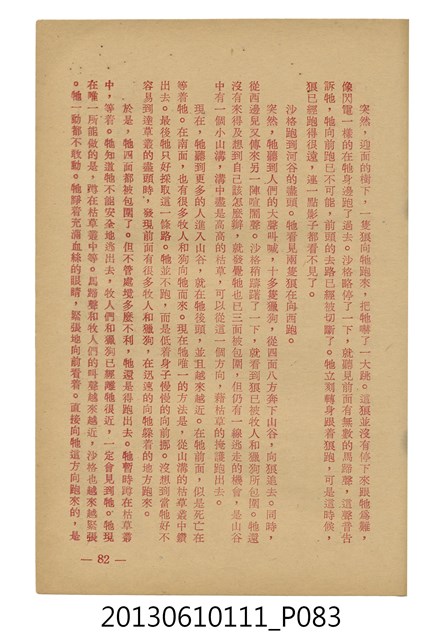 突然，迎面的樹下，一隻狼向牠跑來，把牠嚇了一大跳。這狼並沒有停下來跟牠爲難，
像閃電一樣的在牠身邊跑了過去。沙格略停了一下，就聽見前面有無數的馬蹄聲，這聲音告
訴牠，牠向前跑已不可能，前頭的去路已經被切斷了。牠立刻轉身跟着狼跑，可是這時候，
狼已經跑得很遠，連一點影子都看不見了。
沙格跑到河谷的盡頭。牠看見兩隻狼在向西跑。
突然，牠聽到人們的大聲叫喊，十多隻獵狗，從四面八方奔下山谷，向狼追去。同時，
從西邊兒又傳來另一陣喧鬧聲。沙格稍躊躇了一下，就看到狼已被牧人和獵狗所包圍。牠還
沒有來得及想到自己該怎麼辦，就發覺牠也已三面被包圍，但仍有一線逃走的機會，是山谷
中有一個小山溝，溝中盡是高高的枯草，可以從這一個方向，藉枯草的掩護跑出去。
現在，牠聽到更多的人進入山谷，就在牠後頭，並且越來越近。在牠前面，似是死亡在
等着牠。在南面，也有很多牧人和狗向牠而來。現在牠唯一的方法是，從山溝的枯草叢中鑽
出去。最後牠只好採取這一條路。牠並不跑，而是低着身子慢慢的向前挪。沒想到當牠好不
容易到達草叢的盡頭時，發現前面有很多牧人和獵狗，在迅速的向牠躲着的地方跑來。
於是，牠四面都被包圍了。但不管處境多麼不利，牠還是得跑出去。牠暫時蹲在枯草叢
中，等着。牠知道牠不能安全地逃出去，牧人們和獵狗已經離牠很近，一定會見到牠。牠現
在唯一所能做的是，蹲在枯草叢中等。馬蹄聲和牧人們的叫聲越來越近，沙格也越來越緊張
。牠一動都不敢動。牠睜着充滿血絲的眼睛，緊張地向前看着。直接向牠這方向跑來的，是
— 82 —
20130610111_P083